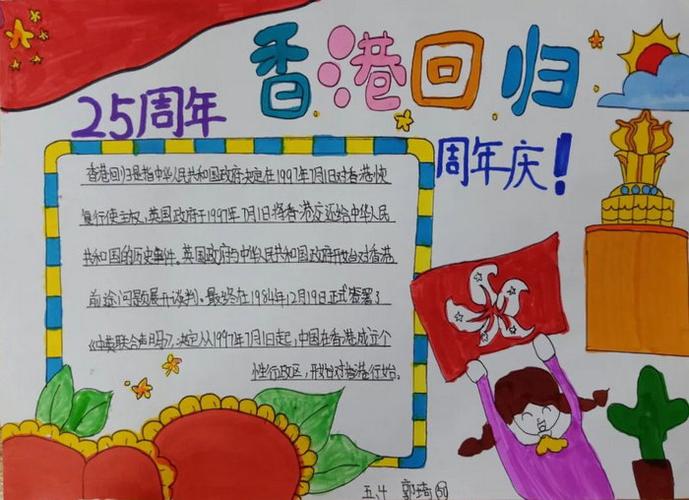 香港回归
25周年
周年庆!
香港回归是指中华人民共和国政府决定在1997年7月1日对香港恢
复行使主权,英国政府于1997年7月1日将香港交还给中华人民
共和国的历史事件。英国政府与中华人民共和国政府开始对香港
前途问题展开谈判。最终在1984年12月19日正式签署了
《中英联合声明》,决定从1997年7月1日起,中国在香港成立个
性行政区,开始对香港行始。
五.4 郭琦